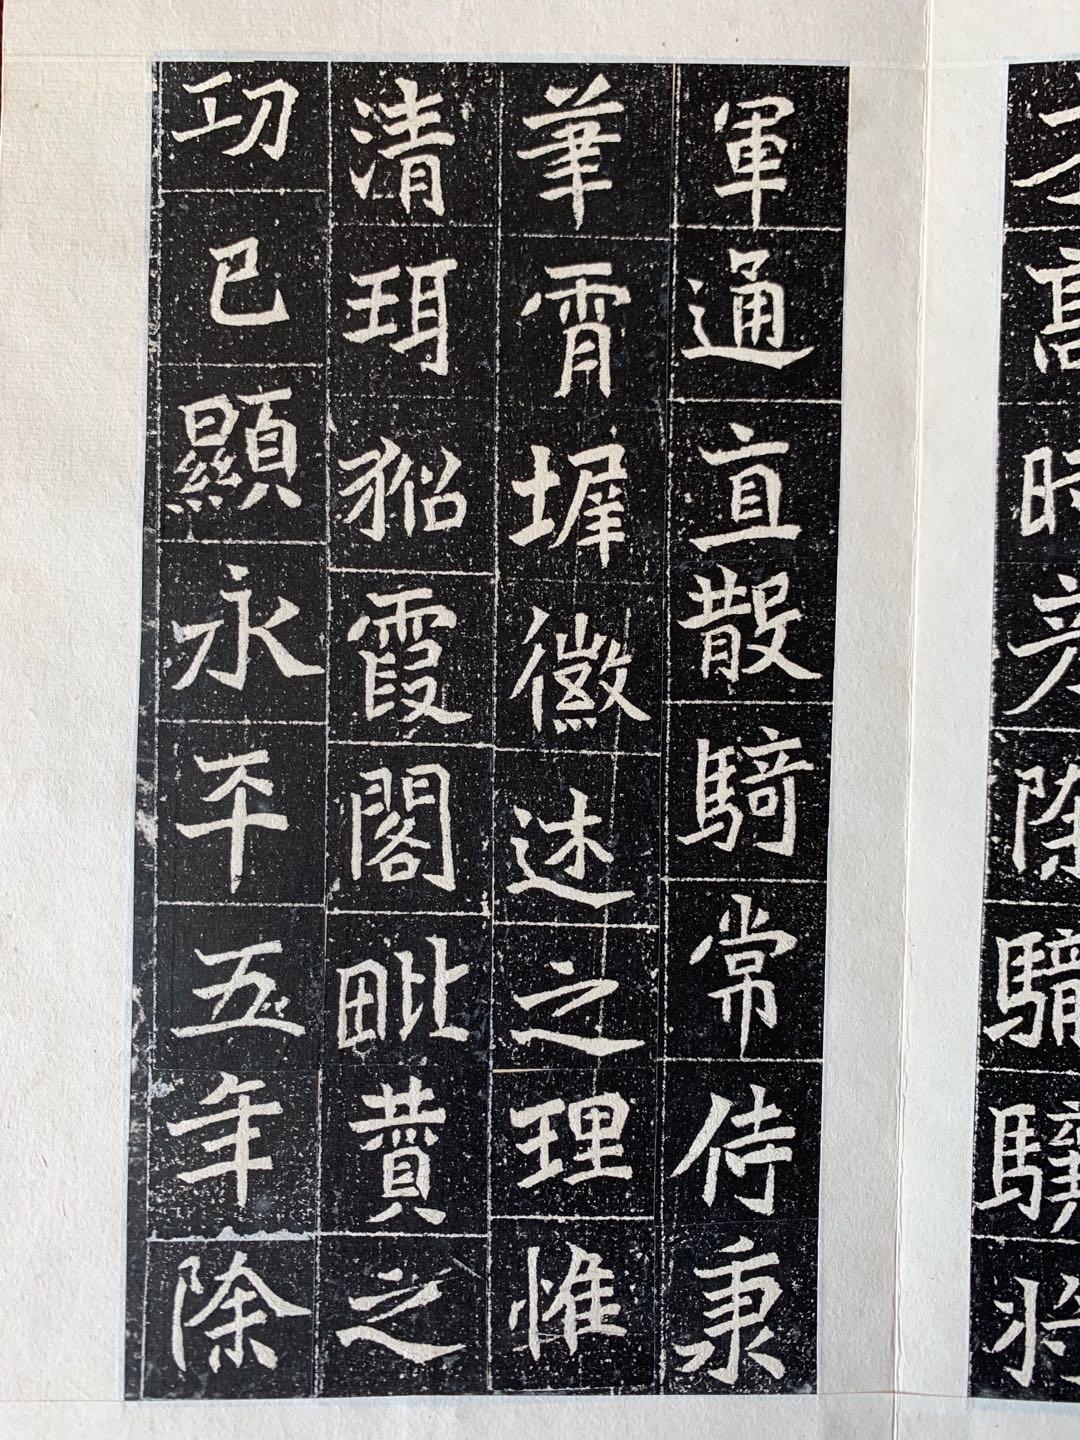 才高時彥除
軍通直散騎常侍秉
筆霄墀徽述之理惟
清珥貂霞閣毗贊之
功已顯永平五年除